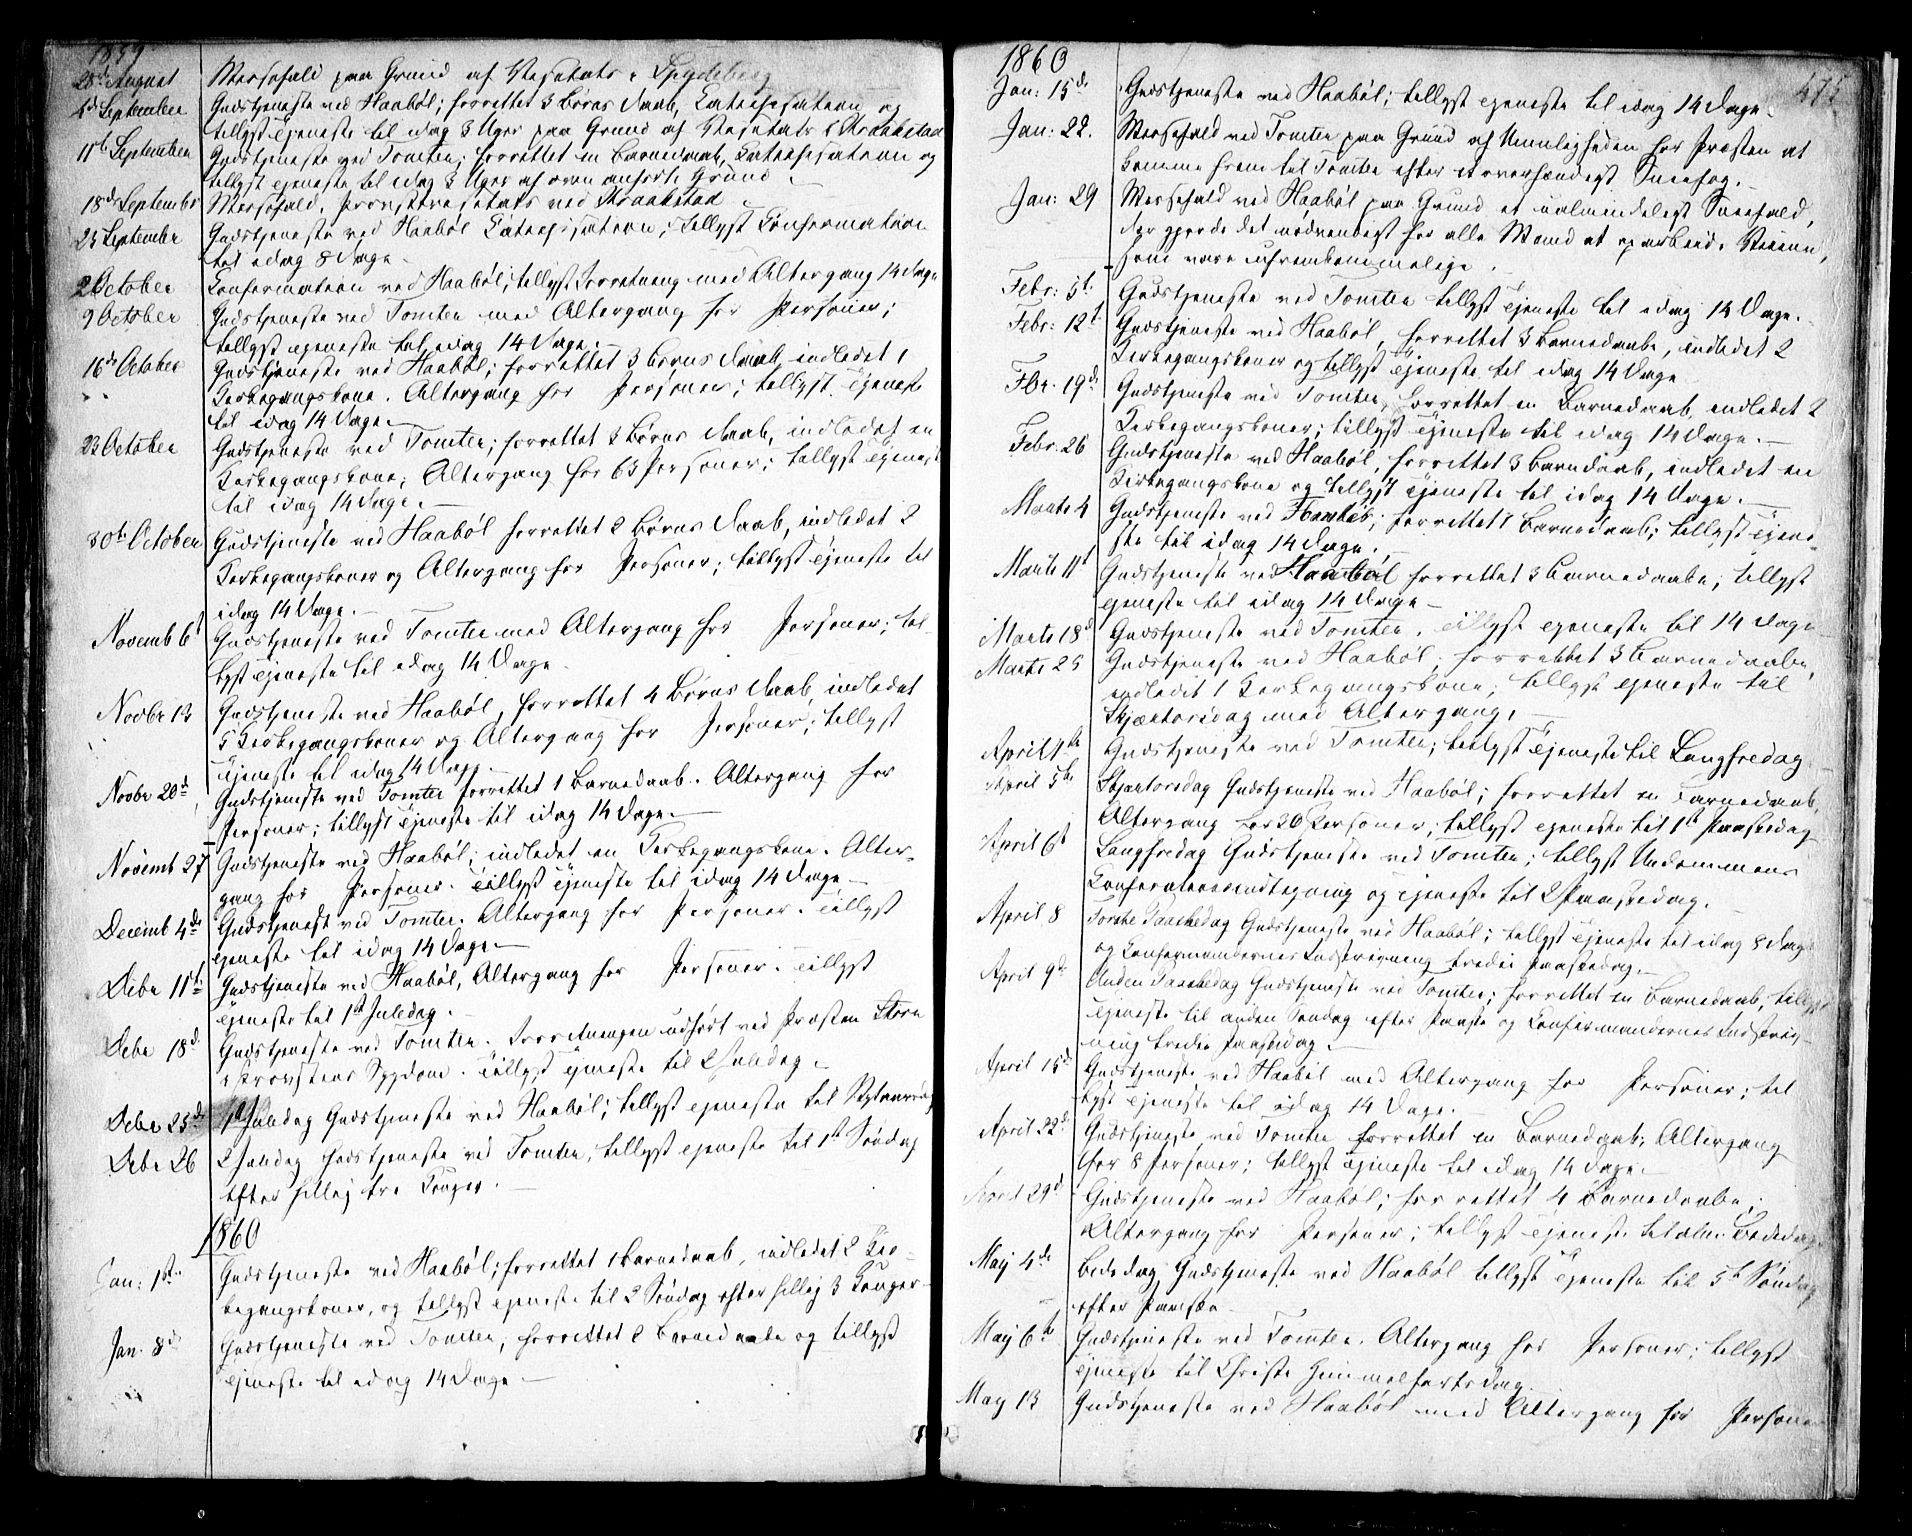 1859
28de August Messefald paa Grund af Visitats i Spydeberg
4de September Gudstjeneste ved Haabøl; forrettet 3 Børns Daab, Catechisation og
tillyst Tjeneste til idag 3 Uger paa Grund af Visitats i Kraakstad
11te September Gudstjeneste ved Tomter; forrettet en Barnedaab, Catechisation og
tillyst Tjeneste til idag 3 Uger af oven anførte Grund.
18de September Messefald, Provstevisitats ved Kraakstad
25 September Gudstjeneste ved Haabøl Catechisation; tillyst Confirmation
til idag 8 Dage
2 October Confirmation ved Haabøl; tillyst Forretning med Altergang 14 Dage
9 October Gudstjeneste ved Tomter med Altergang for Personer;
tillyst Tjeneste til idag 14 Dage.
16de October Gudstjeneste ved Haabøl; forrettet 3 Børns Daab, indledet 1
Kirkegangskone. Altergang for Personer; tillyst Tjeneste
til idag 14 Dage
23 October Gudstjeneste ved Tomter; forrettet 3 Børns Daab, indledet en
Kirkegangskone; Altergang for 63 Personer; tillyst Tjeneste
til idag 14 Dage.
30te October Gudstjeneste ved Haabøl forrettet 2 Børns Daab, indledet 2
Kirkegangskoner og Altergang for Personer; tillyst Tjeneste til
idag 14 Dage.
Novemb 6t Gudstjeneste ved Tomter med Altergang for Personer; til-
lyst Tjeneste til idag 14 Dage.
Novbr 13 Gudstjeneste ved Haabøl, forrettet 4 Børns Daab, indledet
5 Kirkegangskoner og Altergang for Personer; tillyst
Tjeneste til idag 14 Dage.
Novbr 20de Gudstjeneste ved Tomter forrettet 1 Barnedaab. Altergang for
Personer; tillyst Tjeneste til idag 14 Dage.
Novemb 27 Gudstjeneste ved Haabøl; indledet en Kirkegangskone. Alter-
gang for Personer. Tillyst Tjeneste til idag 14 Dage
Decemb 4de Gudstjenest ved Tomter. Altergang for Personer. Tillyst
Tjeneste til idag 14 Dage.
Debr 11te Gudstjeneste ved Haabøl, Altergang for Personer. Tillyst
Tjeneste til 1st Juledag.
Debr 18d Gudstjeneste ved Tomter. Forretningen udført ved Præsten
i Provstens Sygdom. Tillyst Tjeneste til 2 Juledag.
Debr 25de 1st Juledag Gudstjeneste ved Haabøl; tillyst Tjeneste til Nytaarsdag
Debr 26 2 Juledag Gudstjeneste ved Tomter, tillyst Tjeneste til 1st Søndag
efter hellig tre Konger.
1860
Jan: 1ste Gudstjeneste ved Haabøl; forrettet 1 Barnedaab, indledet 2 Kir-
kegangskoner, og tillyst Tjeneste til 2 Søndag efter hellig 3 Konger
Jan. 8de Gudstjeneste ved Tomter, forrettet 2 Barnedaabe og tillyst
Tjeneste til idag 14 Dage.
1860
475
Jan: 15de Gudstjeneste ved Haabøl; tillyst Tjeneste til idag 14 Dage.
Jan: 22. Messefald ved Tomter paa Grund af Umuligheden for Præsten at
komme frem til Tomter efter et overhændigt Sneefog.
Jan: 29 Messefald ved Haabøl paa Grund et ualmindeligt Sneefald,
der gjorde det nødvendigt for alle Mand at oparbeide Veiene,
som vare ufremkommelige.
Febr: 5t Gudstjeneste ved Tomter tillyst Tjeneste til idag 14 Dage.
Febr: 12t Gudstjeneste ved Haabøl, forrettet 3 Barnedaabe, indledet 2
Kirkegangskoner og tillyst Tjeneste til idag 14 Dage
Fbr. 19de Gudstjeneste ved Tomter, forrettet en Barnedaab, indledet 2
Kirkegangskoner; tillyst Tjeneste til idag 14 Dage.
Febr. 26 Gudstjeneste ved Haabøl, forrettet 3 Barndaab, indledet en
Kirkegangskone og tillyst Tjeneste til idag 14 Dage.
Marts 4 Gudstjeneste ved; forrettet 1 Barnedaab; tillyst Tjene-
ste til idag 14 Dage.
Marts 11t Gudstjeneste ved Haabøl forrettet 3 Barnedaabe, tillyst
Tjeneste til idag 14 Dage
Marts 18d Gudstjeneste ved Tomter. Tillyst Tjeneste til 14 Dage
Marts 25 Gudstjeneste ved Haabøl; forrettet 3 Barnedaabe,
indledet 1 Kirkegangskone; tillyst Tjeneste til
Skjærtorsdag med Altergang.
April 1te Gudstjeneste ved Tomter; tillyst Tjeneste til Langfredag
April 5te Skjærtorsdag Gudstjeneste ved Haabøl; forrettet en Barnedaab,
Altergang for 26 Personer; tillyst Tjeneste til 1st Paaskedag
April 6t Langfredag Gudstjeneste ved Tomter; tillyst Ungdommens
og Tjeneste til 2 Paaskedag.
April 8 Første Paaskedag Gudstjeneste ved Haabøl; tillyst Tjeneste til idag 8 Dage
og Confirmandernes Indskrivning tredie Paaskedag.
April 9de Anden Paaskedag Gudstjeneste ved Tomter; forrettet en Barnedaab; tillyst
Tjeneste til anden Søndag efter Paaske og Confirmandernes Indskriv-
ning tredie Paaskedag.
April 15de Gudstjeneste ved Haabøl med Altergang for Personer; til
lyst Tjeneste til idag 14 Dage.
April 22de Gudstjeneste ved Tomter forrettet en Barnedaab; Altergang
for 8 Personer; tillyst Tjeneste til idag 14 Dage.
April 29d Gudstjeneste ved Haabøl; forrettet 4 Barnedaabe;
Altergang for Personer; tillyst Tjeneste til alm. Bededag
Maj 4de Bededag Gudstjeneste ved Haabøl tillyst Tjeneste til 5te Søndag
efter Paaske
Maj 6te Gudstjeneste ved Tomter. Altergang for Personer; tillyst
Tjeneste til Christi Himmelfartsdag
May 13 Gudstjeneste ved Haabøl med Altergang for Personer